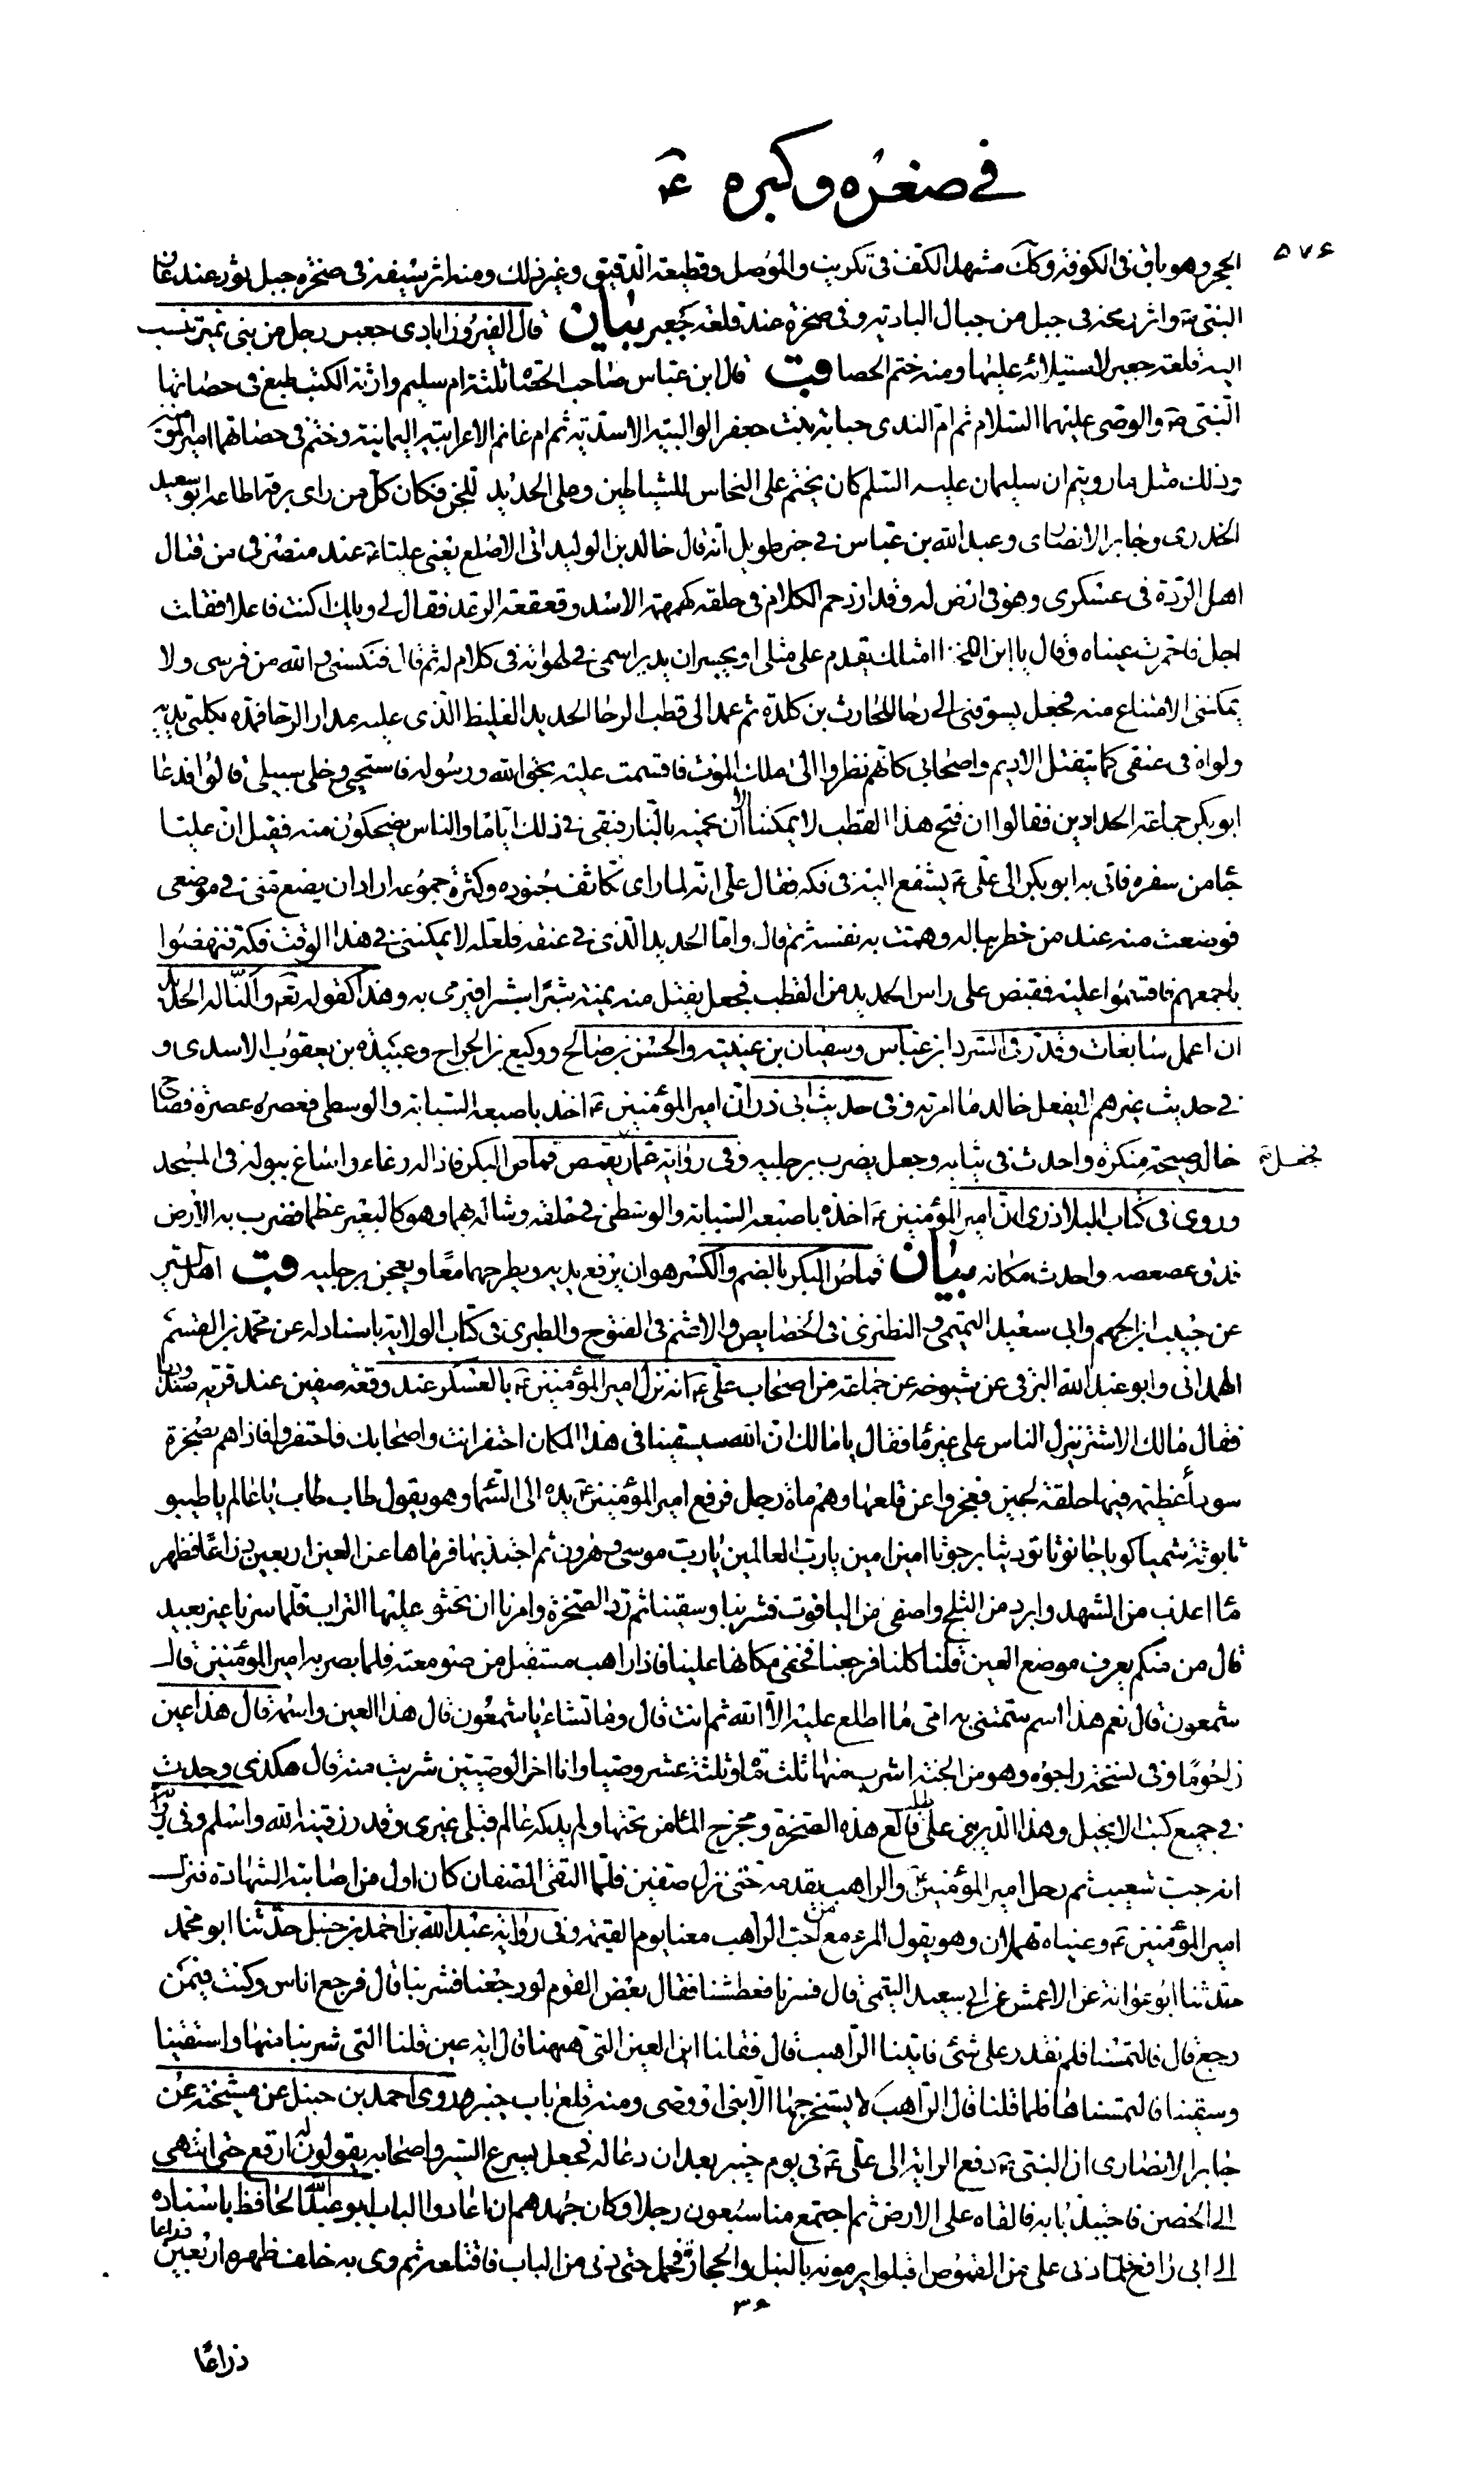 في صغره وكبره ع
٥٧٤
الحجر وهو باق في الكوفة وكك مشهد الكف في تكريت والموصل وقطيعة الدقيق وغير ذلك ومنه اثر سيفه في صخرة جبل ثور عند غار
النبي ص واثر رمحه في جبل من جبال البادية وفي صخرة عند قلعة جعبر بيان قال الفيروزابادي جعبر رجل من بني نمير تنسب
اليه قلعة جعبر لاستيلائه عليها ومنه ختم الحصا قب قال ابن عباس صاحب الحصاة ثلثة ام سليم وارثة الكتب طبع في حصاتها
النبي ص والوصي عليهما السلام ثم ام الندى حبابة بنت جعفر الوالبية الاسدية ثم ام غانم الاعرابية اليمانية وختم في حصاتهما امير المؤمنين
وذلك مثل ما رويتم ان سليمان عليه السلم كان يختم على النحاس للشياطين وعلى الحديد للجن فكان كل من راى برقه اطاعه ابو سعيد
الخدري وجابر الانصاري وعبد الله بن عباس في خبر طويل انه قال خالد بن الوليد اتى الاصلع يعني عليا ع عند منصرفي من قتال
اهل الردة في عسكري وهو في ارض له وقد ازدحم الكلام في حلقه كهمهمة الاسد وقعقعة الرعد فقال لي ويلك اكنت فاعلا فقلت
اجل فاحمرت عيناه وقال يا ابن اللخنا امثلك يقدم على مثلي او يجسر ان يدير اسمي في لهواته في كلام له ثم قال فنكسني والله من فرسي ولا
يمكنني الامتناع منه فجعل يسوقني الى رحا للحارث بن كلدة ثم عمد الى قطب الرحا الحديد الغليظ الذي عليه مدار الرحا فمده بكلتي يديه
ولواه في عنقي كما يتفتل الاديم واصحابي كانهم نظروا الى ملك الموت فاقسمت عليه بحق الله ورسوله فاستحيى وخلى سبيلي قالوا فدعا
ابو بكر جماعة الحدادين فقالوا ان فتح هذا القطب لا يمكننا الا ان نحميه بالنار فبقي في ذلك اياما والناس يضحكون منه فقيل ان عليا
جا من سفره فاتى به ابو بكر الى علي ع يشفع اليه في فكه فقال علي انه لما راى تكاثف جنوده وكثرة جموعه اراد ان يضع مني في موضعي
فوضعت منه عند من خطر بباله وهمت به نفسه ثم قال واما الحديد الذي في عنقه فلعله لا يمكنني في هذا الوقت فكه فنهضوا
باجمعهم فاقسموا عليه فقبض على راس الحديد من القطب فجعل يفتل منه يمينه شبرا شبرا فيرمي به وهذا كقوله تع والنا له الحديد
ان اعمل سابغات وقدر في السرد ابن عباس وسفيان بن عيينة والحسن بن صالح ووكيع بن الجراح وعبيدة بن يعقوب الاسدي و
في حديث غيرهم ليفعل خالد ما امر به وفي حديث ابي ذر ان امير المؤمنين ع اخذ باصبعه السبابة والوسطى فعصره عصرة فصاح
خالد صيحة منكرة واحدث في ثيابه وجعل يضرب برجليه وفي رواية عمار فجعل ع يقمص قماص البكر فاذا له رغاء واساغ ببوله في المسجد
وروى في كتاب البلاذري ان امير المؤمنين ع اخذه باصبعه السبابة والوسطى في حلقه وشاله بهما وهو كالبعير عظما فضرب به الارض
فدق عصعصه واحدث مكانه بيان قماص البكر بالضم والكسر هو ان يرفع يديه ويطرحهما معا ويعجن برجليه قب اهل السير
عن حبيب بن الجهم وابي سعيد التميمي والنطنزي في الخصايص والاعثم في الفتوح والطبري في كتاب الولاية باسناد له عن محمد بن القسم
الهمداني وابو عبد الله البرقي عن شيوخه عن جماعة من اصحاب علي ع انه نزل امير المؤمنين ع بالعسكر عند وقعة صفين عند قرية صندوديا
فقال مالك الاشتر ينزل الناس على غير ما فقال يا مالك ان الله سيسقينا في هذا المكان احتفر انت واصحابك فاحتفروا فاذا هم بصخرة
سودا عظيمة فيها حلقة لجين فعجزوا عن قلعها وهم ماة رجل فرفع امير المؤمنين ع يده الى السما وهو يقول طاب طاب يا عالم يا طيبو
ثابوثة شميا كويا جانوثا توديثا برجوثا امين امين يا رب العالمين يا رب موسى وهرون ثم اجتذبها فرماها عن العين اربعين ذراعا فظهر
ما اعذب من الشهد وابرد من الثلج واصفى من الياقوت فشربنا وسقينا ثم رد الصخرة وامرنا ان نحثو عليها التراب فلما سرنا غير بعيد
قال من منكم يعرف موضع العين قلنا كلنا فرجعنا فخفي مكانها علينا فاذا راهب مستقبل من صومعته فلما بصر به امير المؤمنين قال
شمعون قال نعم هذا اسم سمتني به امي ما اطلع عليه الا الله ثم انت قال وما تشاء يا شمعون قال هذا العين واسمه قال هذا عين
زاحوما وفي نسخة راجوه وهو من الجنة شرب منها ثلث ماة وثلثة عشر وصيا وانا اخر الوصيين شربت منه قال هكذى وجدت
في جميع كتب الانجيل وهذا الدير بني على قالع هذه الصخرة ومخرج الما من تحتها ولم يدركه عالم قبلي غيري وقد رزقنيه الله واسلم وفي رواية
انه جب شعيب ثم رحل امير المؤمنين ع والراهب يقدمه حتى نزل صفين فلما التقى الصفان كان اول من اصابته الشهادة فنزل
امير المؤمنين ع وعيناه تهملان وهو يقول المرء مع من احب الراهب معنا يوم القيمة وفي رواية عبد الله بن احمد بن حنبل حدثنا ابو محمد
حدثنا ابو عوانة عن الاعمش عن ابي سعيد التيمي قال فسرنا فعطشنا فقال بعض القوم لو رجعنا فشربنا قال فرجع اناس وكنت فيمن
رجع قال فالتمسنا فلم نقدر على شئ فاتينا الراهب قال فقلنا اين العين التي ههنا قال اية عين قلنا التي شربنا منها واستقينا
وسقينا فالتمسناها فلما قلنا قال الراهب لا يستخرجها الا نبي او وصي ومنه قلع باب خيبر روى احمد بن حنبل عن مشيخته عن
جابر الانصاري ان النبي ص دفع الراية الى علي ع في يوم خيبر بعد ان دعا له فجعل يسرع السير واصحابه يقولون له ارفع حتى انتهى
الى الحصن فاجتبذ بابه فالقاه على الارض ثم اجتمع منا سبعون رجلا وكان جهدهم ان اعادوا الباب ابو عبد الله الحافظ باسناده
الى ابي رافع فلما دنى علي من القموص اقبلوا يرمونه بالنبل والحجارة فحمل حتى دنى من الباب فاقتلعه ثم رمى به خلف ظهره اربعين ذراعا
ذراعا